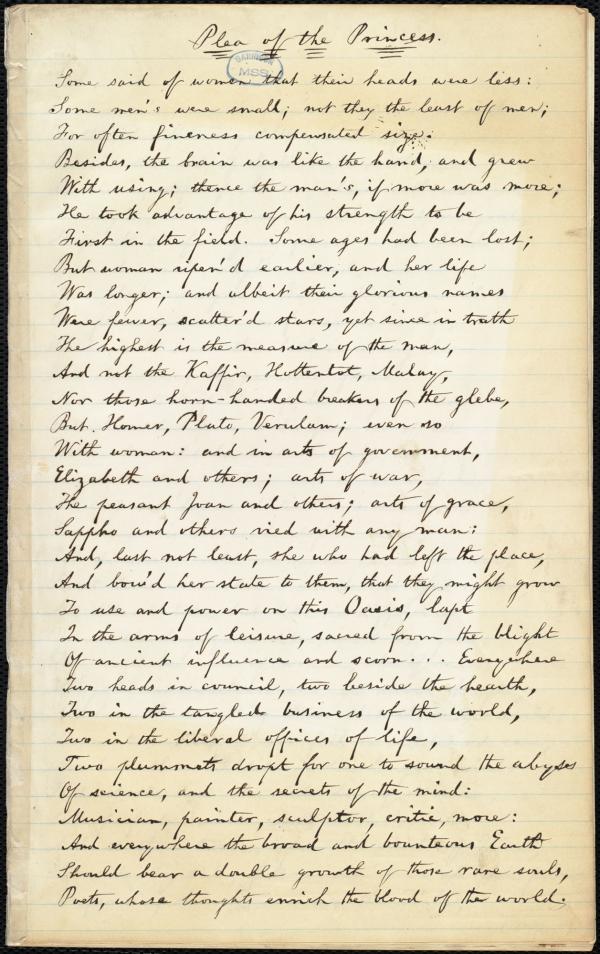 Plea of the Princess.
GARRISON
MSS
Some said of women that their heads were less:
Some men's were small; not they the least of men;
For often fineness compensated size:
Besides, the brain was like the hand, and grew
With using; thence the man's, if more was more;
He took advantage of his strength to be
First in the field. Some ages had been lost;
But woman ripen'd earlier, and her life
Was longer; and albeit their glorious names
Were fewer, scatter'd stars, yet since in truth
The highest is the measure of the man,
And not the Kaffir, Hottentot, Malay,
Nor those horn-handed breakers of the glebe,
But Homer, Plato, Verulam; even so
With woman: and in arts of government,
Elizabeth and others; arts of war,
The peasant Joan and others; arts of grace,
Sappho and others vied with any man:
And, last not least, she who had left the place,
And bow'd her state to them, that they might grow
To use and power on this Oasis, lapt
In the arms of leisure, sacred from the blight
Of ancient influence and scorn... Everywhere
Two heads in council, two beside the hearth,
Two in the tangled business of the world,
Two in the liberal offices of life,
Two plummets dropt for one to sound the abyss
Of science, and the secrets of the mind:
Musician, painter, sculptor, critic, more:
And everywhere the broad and bounteous Earth
Should bear a double growth of those rare souls,
Poets, whose thoughts enrich the blood of the world.